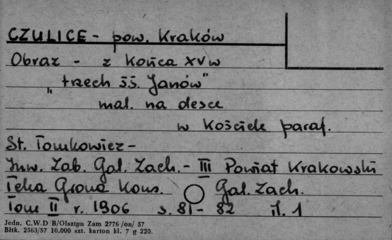 CZULICE - pow. Kraków
Obraz - z końca XV w
„trzech śś. Janów"
mal. na desce
w Kościele paraf.
St. Tomkowicz -
Inw. Zab. Gal. Zach. - III Powiat Krakowski
Teka Grona Kons. Gal. Zach.
Tom II r. 1906 s. 81 - 82 il. 1
Jedn. C.W.D B/Olsztyn Zam 2776 /on/ 57
Błtk. 2563/57 10.000 szt. karton kl. 7 g 220.